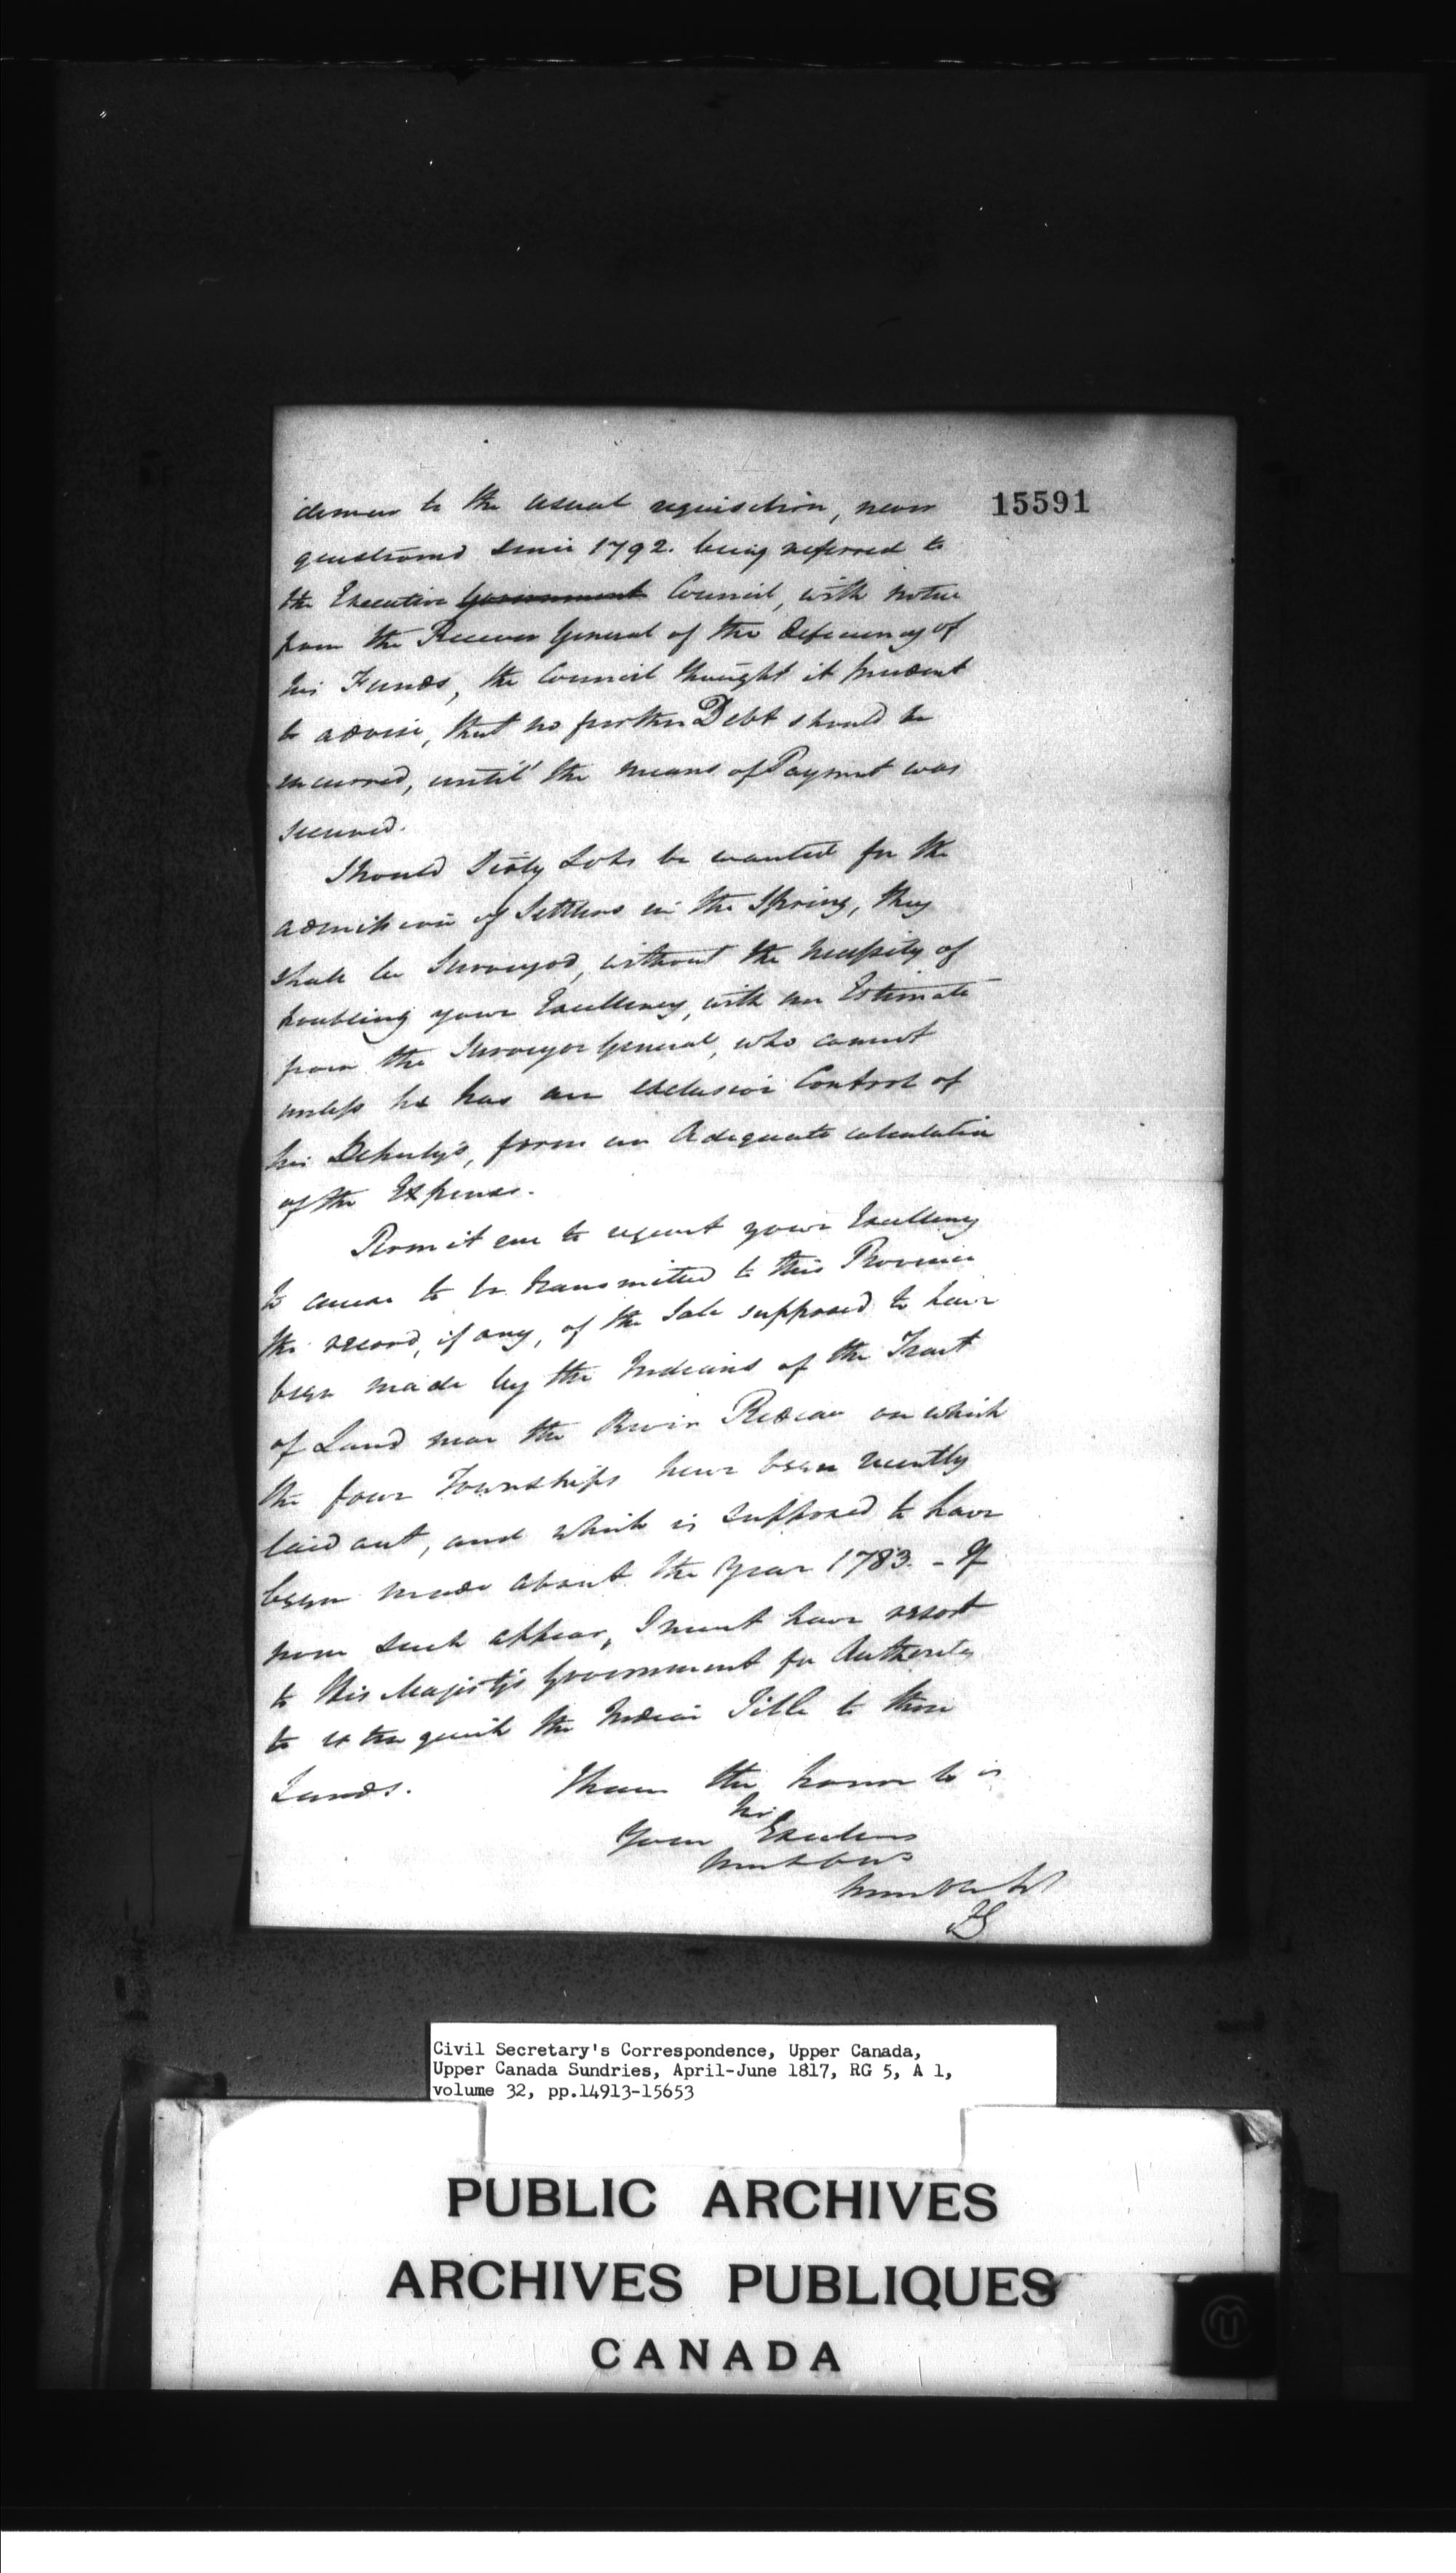 15591
to the usual requisition, never
questioned since 1792. being referred to
the Executive Government Council, with notice
from the Receiver General of the deficiency of
his Funds, the Council thought it prudent
to advise, that no further Debt should be
incurred, until the means of Payment was
secured.
Should Sixty Lots be wanted for the
admission of Settlers in the Spring, they
shall be Surveyed, without the necessity of
troubling your Excellency, with an Estimate
from the Surveyor General, who cannot
unless he has an exclusive Control of
his Deputys, form an Adequate calculation
of the Expense.
Permit me to request your Excellency
to cause to be transmitted to this Province
the record, if any, of the Sale supposed to have
been made by the Indians of the Tract
of Land near the River Rideau on which
the four Townships have been recently
laid out, and which is supposed to have
been made about the Year 1783. - If
none such appear, I must have resort
to His Majesty's Government for Authority
to extinguish the Indian Title to those
Lands. I have the honor to be
Your Excellency's
FG
Civil Secretary's Correspondence, Upper Canada,
Upper Canada Sundries, April-June 1817, RG 5, A 1,
volume 32, pp.14913-15653
PUBLIC ARCHIVES
ARCHIVES PUBLIQUES
CANADA